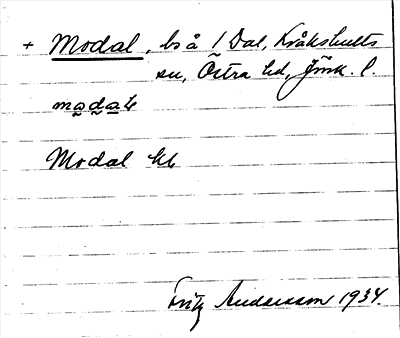 + Modal, bs å 1 Dal, Kråkshults
sn, Östra hd, Jönk. l.
madaḷ
Modal hb
Fritz Andersson 1934.